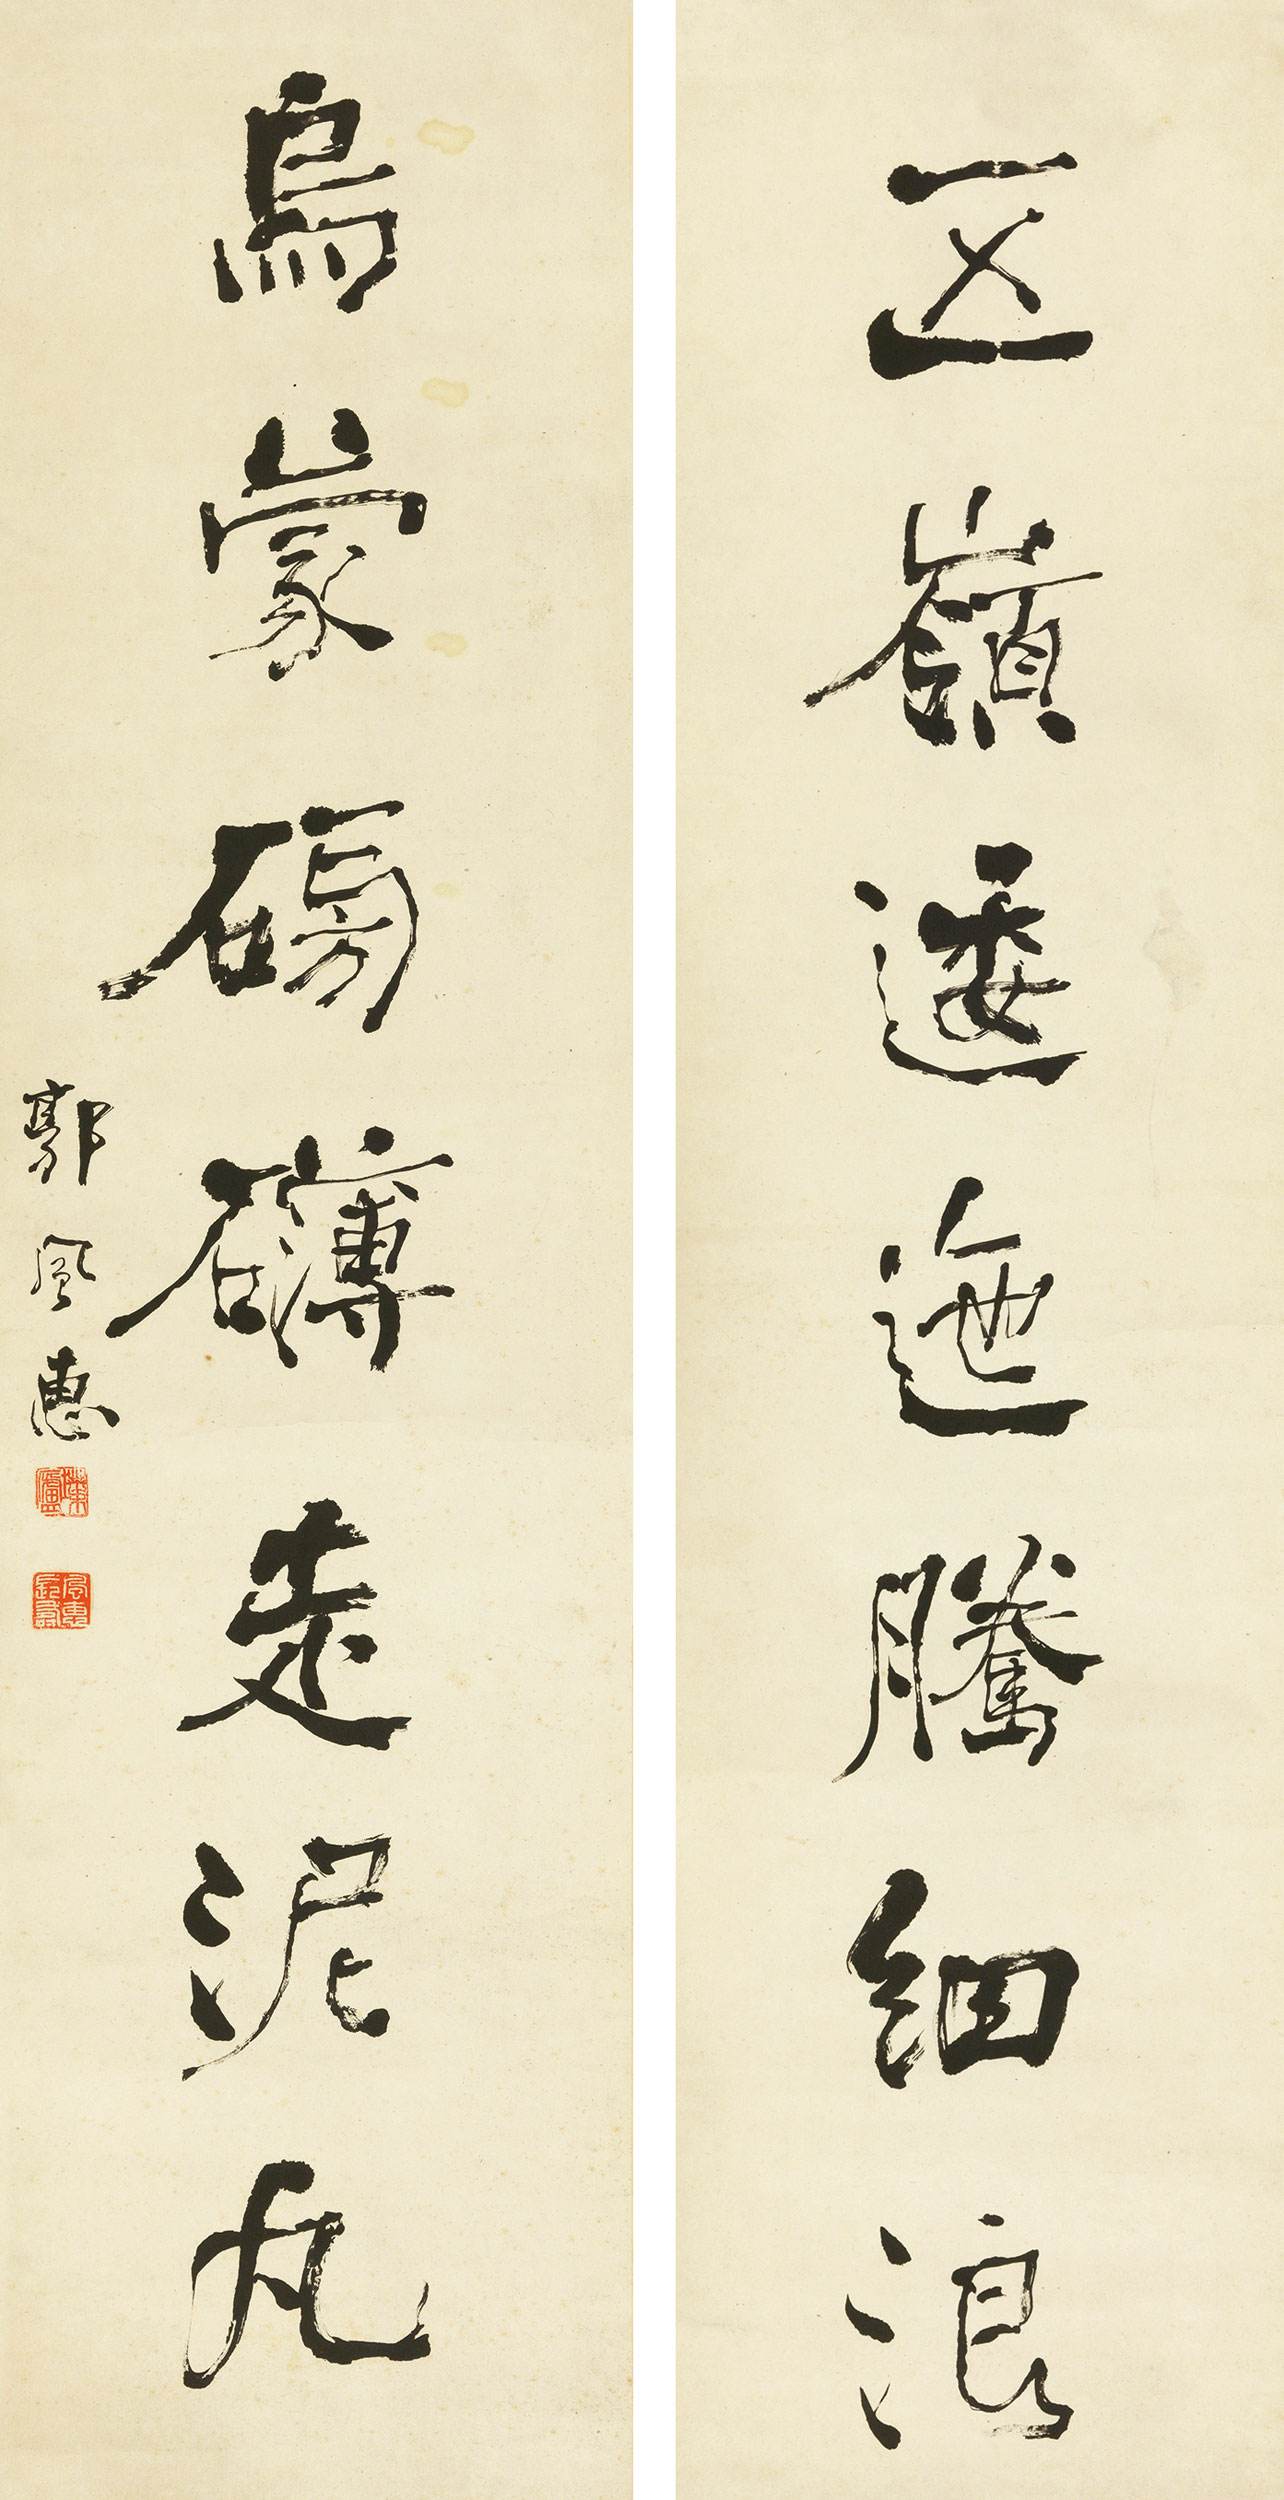 五嶺逶迤騰細浪
烏蒙磅礴走泥丸
郭風惠
風惠長壽